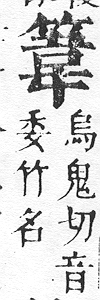 烏鬼切音
委竹名